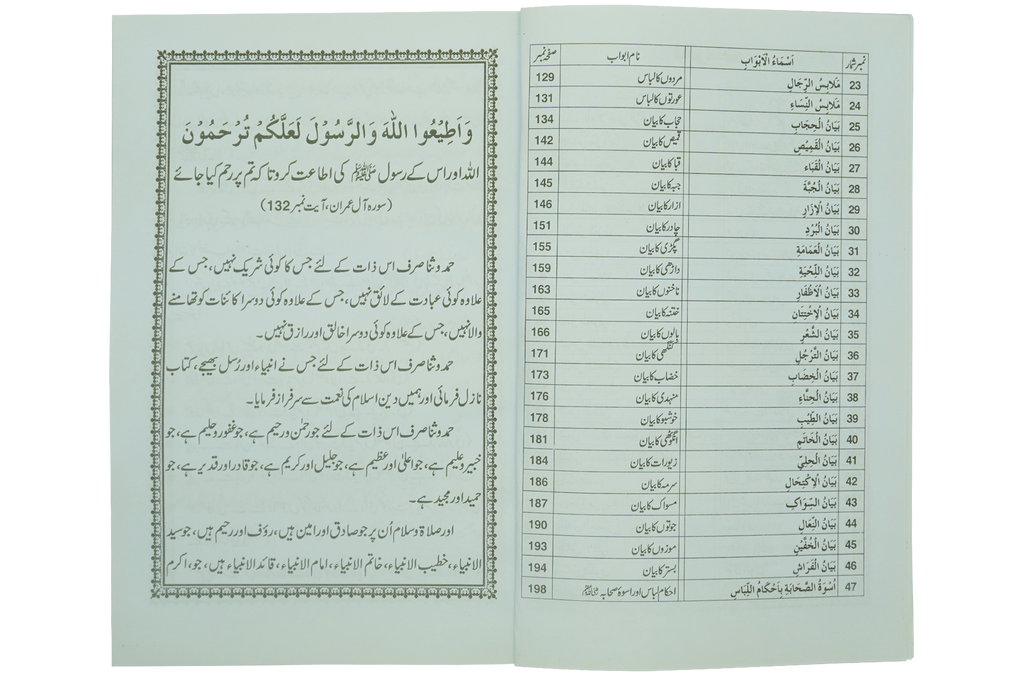 نمبر شمار اَسْمَاءُ الْاَبْوَابِ نام ابواب صفحہ نمبر
23 مَلَابِسُ الرِّجَالِ مردوں کا لباس 129
24 مَلَابِسُ النِّسَاءِ عورتوں کا لباس 131
25 بَيَانُ الْحِجَابِ حجاب کا بیان 134
26 بَيَانُ الْقَمِيْصِ قمیص کا بیان 142
27 بَيَانُ الْقَبَاءِ قبا کا بیان 144
28 بَيَانُ الْجُبَّةِ جبہ کا بیان 145
29 بَيَانُ الْاِزَارِ ازار کا بیان 146
30 بَيَانُ الْبُرْدِ چادر کا بیان 151
31 بَيَانُ الْعَمَامَةِ پگڑی کا بیان 155
32 بَيَانُ اللِّحْيَةِ داڑھی کا بیان 159
33 بَيَانُ الْاَظْفَارِ ناخنوں کا بیان 163
34 بَيَانُ الْاِخْتِتَانِ ختنہ کا بیان 165
35 بَيَانُ الشَّعْرِ بالوں کا بیان 166
36 بَيَانُ التَّرَجُّلِ کنگھی کا بیان 171
37 بَيَانُ الْخِضَابِ خضاب کا بیان 173
38 بَيَانُ الْحِنَّاءِ مہندی کا بیان 176
39 بَيَانُ الطِّيْبِ خوشبو کا بیان 178
40 بَيَانُ الْخَاتَمِ انگوٹھی کا بیان 181
41 بَيَانُ الْحِلِيِّ زیورات کا بیان 184
42 بَيَانُ الْاِكْتِحَالِ سرمہ کا بیان 186
43 بَيَانُ السِّوَاكِ مسواک کا بیان 187
44 بَيَانُ النِّعَالِ جوتوں کا بیان 190
45 بَيَانُ الْخُفَّيْنِ موزوں کا بیان 193
46 بَيَانُ الْفَرَاشِ بستر کا بیان 194
47 اُسْوَةُ الصَّحَابَةِ بِاَحْكَامِ اللِّبَاسِ احکام لباس اور اسوۂ صحابہ ﷺ 198
وَاَطِيْعُوا اللّٰهَ وَالرَّسُوْلَ لَعَلَّكُمْ تُرْحَمُوْنَ
اللہ اور اس کے رسول ﷺ کی اطاعت کرو تا کہ تم پر رحم کیا جائے
(سورہ آل عمران، آیت نمبر 132)
حمد و ثنا صرف اس ذات کے لئے جس کا کوئی شریک نہیں، جس کے
علاوہ کوئی عبادت کے لائق نہیں، جس کے علاوہ کوئی دوسرا کائنات کو تھامنے
والا نہیں، جس کے علاوہ کوئی دوسرا خالق اور رازق نہیں۔
حمد و ثنا صرف اس ذات کے لئے جس نے انبیاء اور رُسل بھیجے، کتاب
نازل فرمائی اور ہمیں دین اسلام کی نعمت سے سرفراز فرمایا۔
حمد و ثنا صرف اس ذات کے لئے جو رحمٰن و رحیم ہے، جو غفور و حلیم ہے، جو
خبیر و علیم ہے، جو اعلیٰ اور عظیم ہے، جو جلیل اور کریم ہے، جو قادر اور قدیر ہے، جو
حمید اور مجید ہے۔
اور صلاۃ و سلام اُن پر جو صادق اور امین ہیں، رؤف اور رحیم ہیں، جو سید
الانبیاء، خطیب الانبیاء، خاتم الانبیاء، امام الانبیاء، قائد الانبیاء ہیں، جو، اکرم